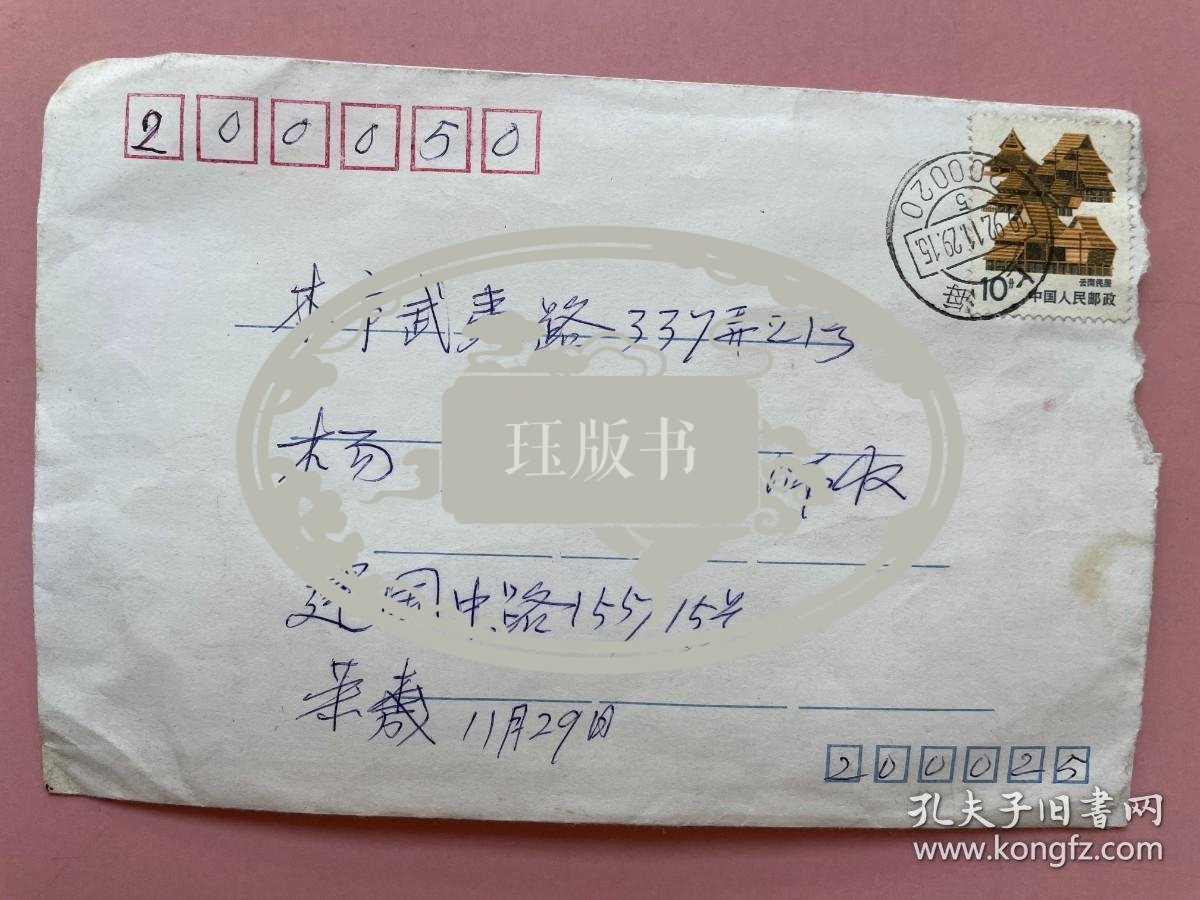 200050
200020
5
1992.11.29.15
上海
云南民居
10分
中国人民邮政
本市武夷路337弄21号
杨 收
珏版书
建国中路155/15号
11月29日
200025
孔夫子旧书网
www.kongfz.com